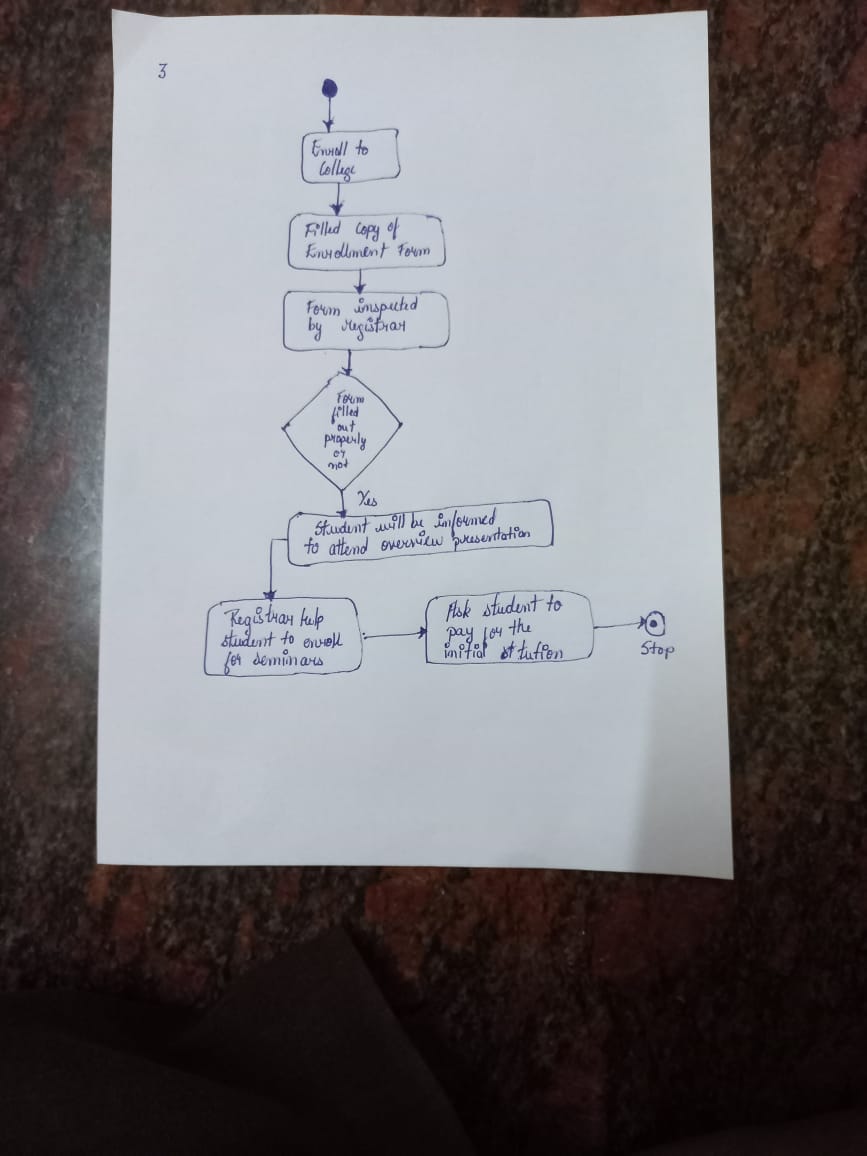 3
Enroll to
College
Filled Copy of
Enrollment Form
Form inspected
by registrar
Form
filled
out
properly
or
not
Yes
Student will be informed
to attend overview presentation
Registrar help
student to enroll
for seminars
Ask student to
pay for the
initial tution
Stop